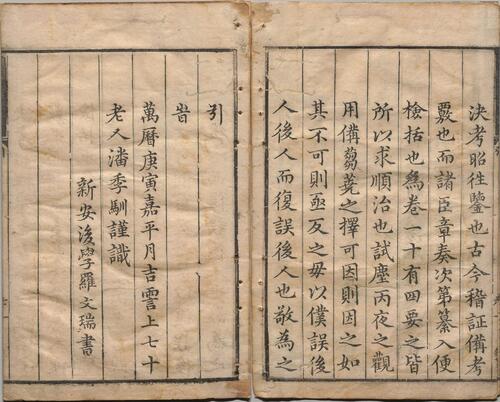 決考昭徃鑒也古今稽証備考
覈也而諸臣章奏次第纂入便
檢括也為卷一十有四要之皆
所以求順治也試塵丙夜之觀
用備芻蕘之擇可因則因之如
其不可則亟反之毋以僕誤後
人後人而復誤後人也敬為之
引
旹
萬曆庚寅嘉平月吉霅上七十
老人潘季馴謹識
新安後學羅文瑞書